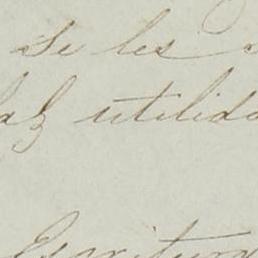 Se les
las utilida
Escritura